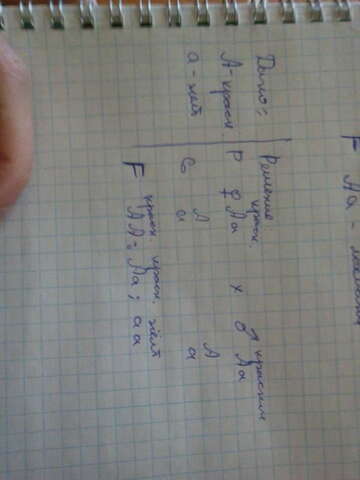 Дано:
А - красн.
а - жёлт
Решение
красн. красным
Р ♀ Аа х ♂ Аа
G А А
а а
красн. красн. жёлт
F АА; Аа; аа
F Аа -